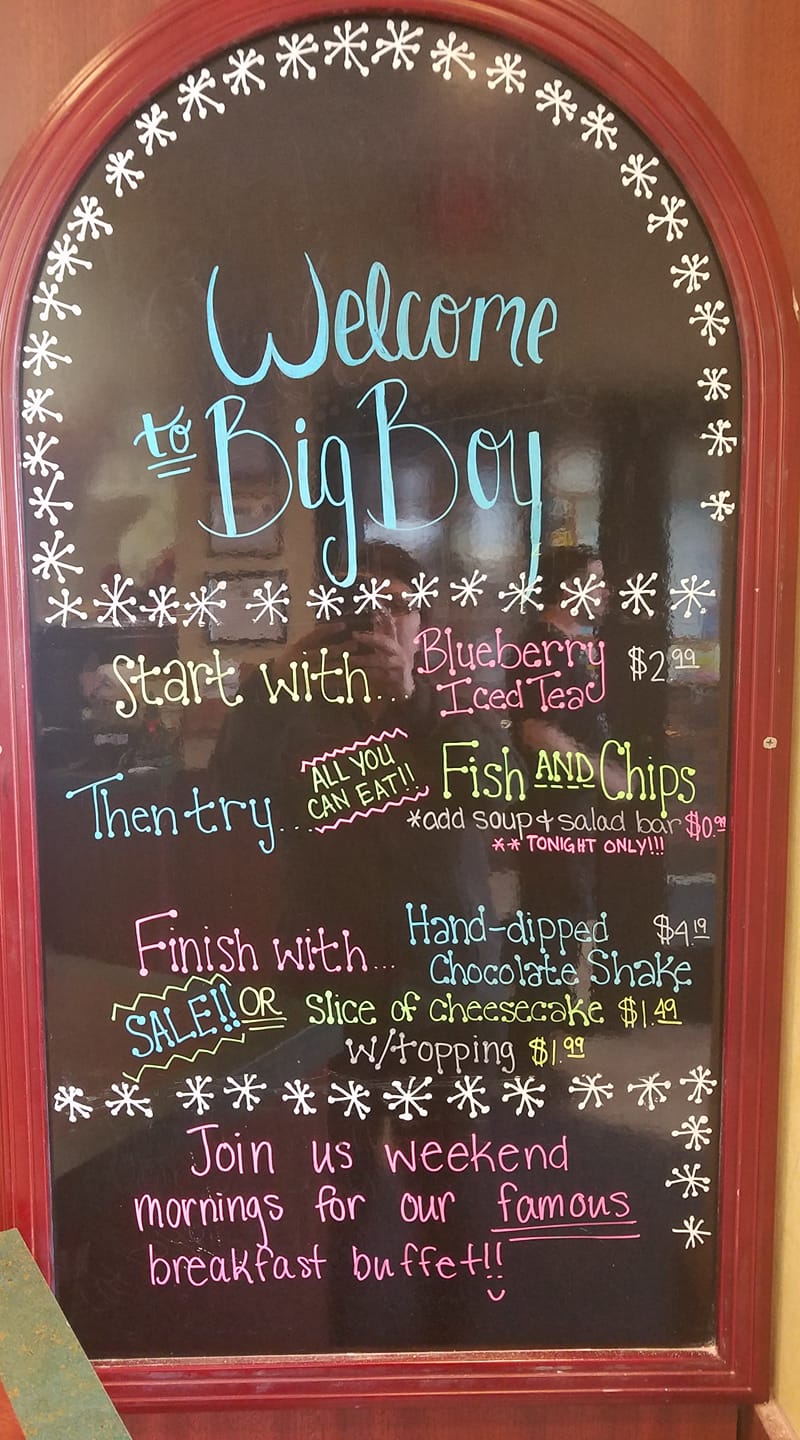 Welcome
to Big Boy
Start with... Blueberry Iced Tea $2.99
Then try... ALL YOU CAN EAT!! Fish AND Chips
*add soup & salad bar $0.99
** TONIGHT ONLY!!!
Finish with... Hand-dipped $4.19
Chocolate Shake
SALE!! OR Slice of cheesecake $1.49
w/topping $1.99
Join us weekend
mornings for our famous
breakfast buffet!!